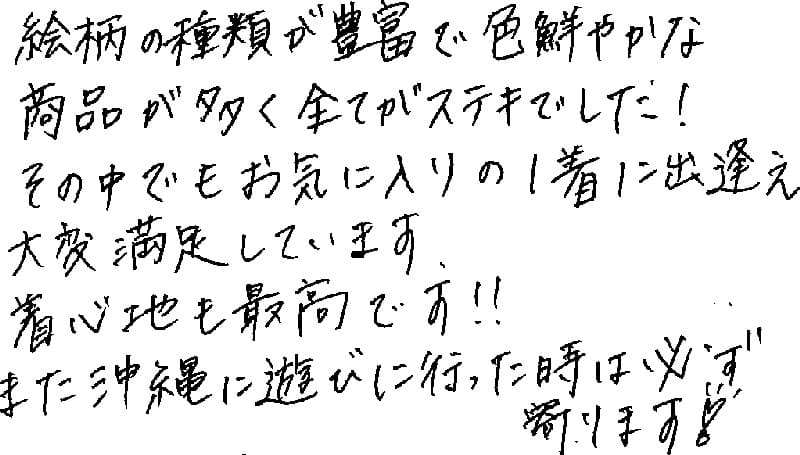 絵柄の種類が豊富で色鮮やかな
商品が多く全てがステキでした！
その中でもお気に入りの1着に出逢え
大変満足しています
着心地も最高です!!
また沖縄に遊びに行った時は必ず
寄ります!!